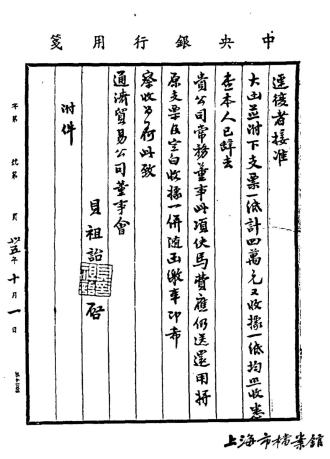 中央銀行用箋
逕復者接准
大函並附下支票一紙計四萬元又收據一紙均照收悉
查本人已辭去
貴公司常務董事此項伕馬費應仍送還用將
原支票及空白收據一併隨函繳奉即希
察收為荷此致
通濟貿易公司董事會
附件
貝祖詒
啓
字第 號第 頁 卅五年十月一日
上海市檔案館